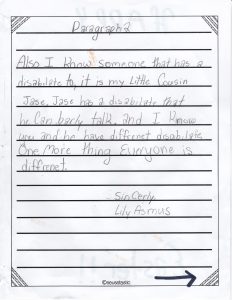 Paragraph 2
Also I know someone that has a
disabilate to, it is my Little Cousin
Jase. Jase has a disabilate that
he Can barly talk. and I know
you and he have different disabilate.
One more thing Everyone is
diffrenet.
Sincerly
Lily Asmus